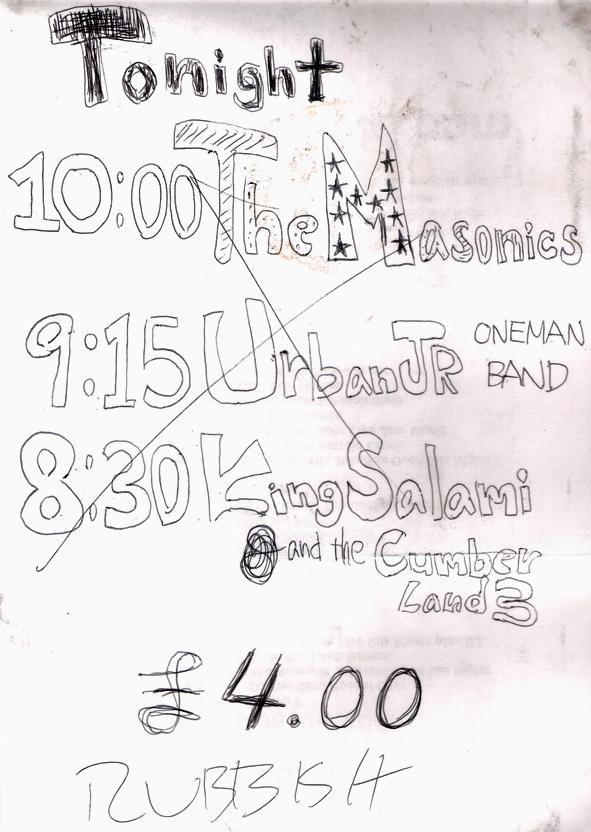 Tonight
10:00 The Masonics
9:15 Urban JR ONEMAN BAND
8:30 King Salami
and the Cumber
Land 3
£4.00
RUBBISH